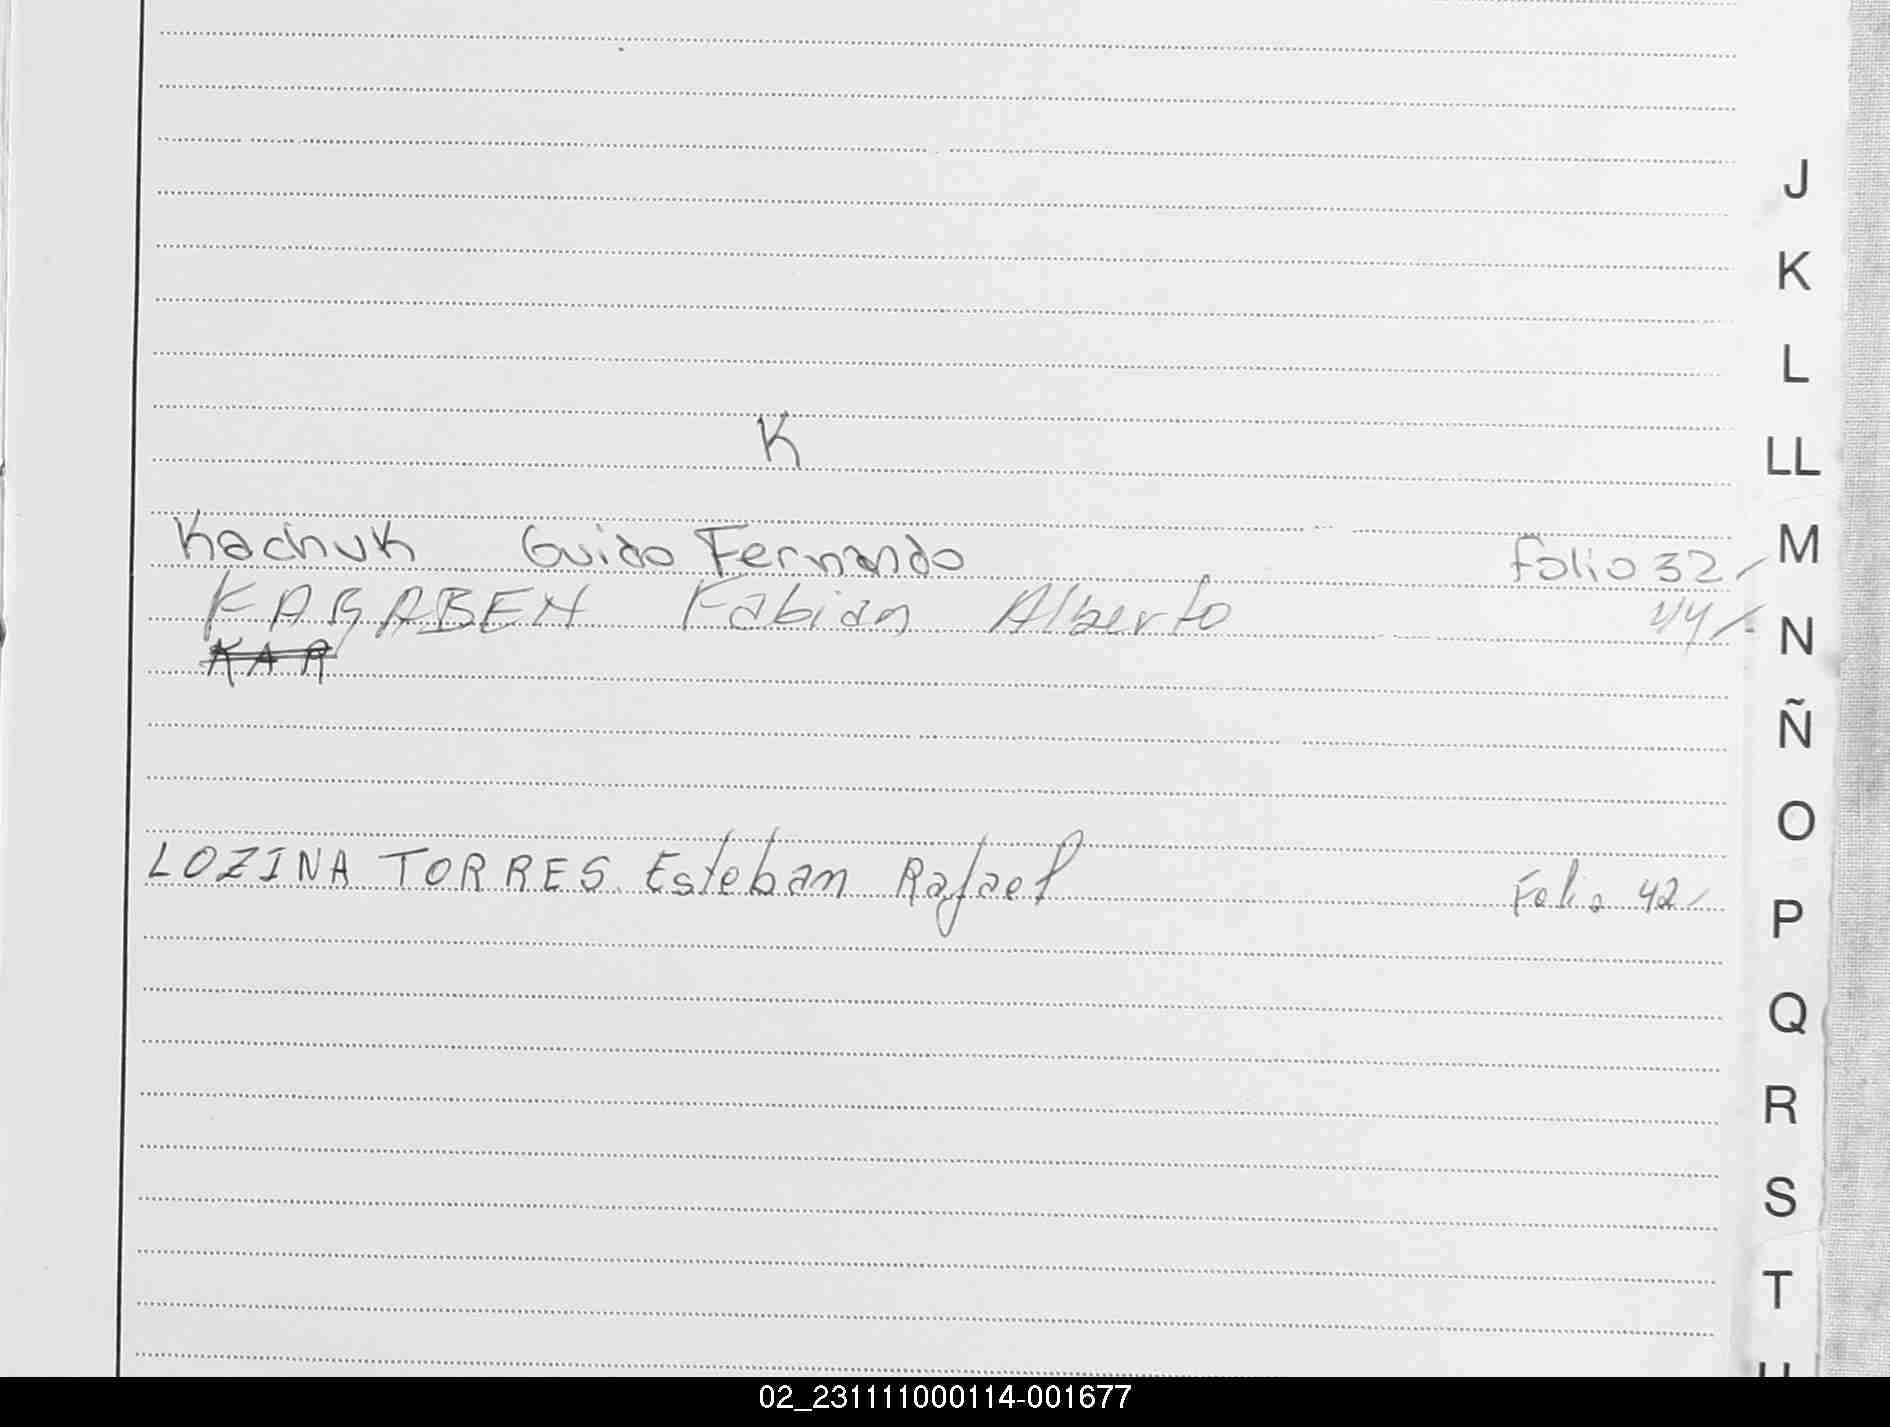 J
K
L
LL
K
Kachuk Guido Fernando folio 32
M
KARABEN Fabian Alberto 44
N
KAR
Ñ
O
LOZINA TORRES Esteban Rafael Folio 42
P
Q
R
S
T
02_231111000114-001677